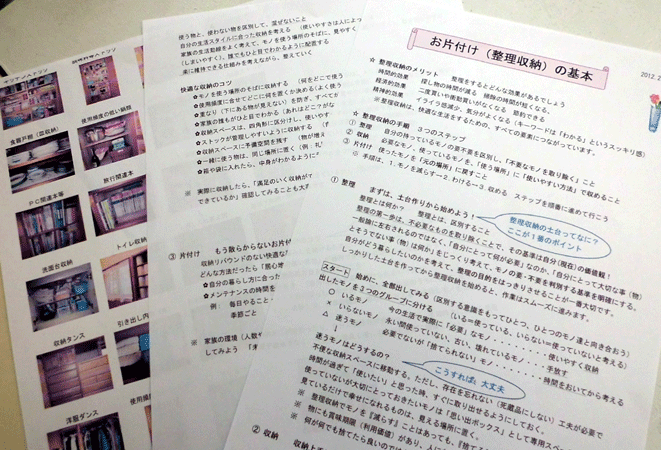 使う物と、使わない物を区別して、混ぜないこと
自分の生活スタイルに合った収納を考える （使いやすさは人によっ
家族の生活動線をよく考えて、モノを使う場所のそばに、見やすく
（しまいやすく）、誰でもひと目でわかるように配置する
楽に維持できる仕組みを考えながら、整えていく
快適な収納のコツ
✿モノを使う場所のそばに収納する （何をどこで使う
✿使用頻度に合せてどこに何を置くか決める よく
✿重なり（下にある物が見えない）を防ぎ、すべてが
✿家族の誰もがひと目でわかる（あればどこがな
✿収納スペースは、四角形に区分けし、使いやす
✿ストックが管理しやすいように収納する （予
✿収納スペースに予備空間を残す 物が増え
✿一緒に使う物は、同じ場所に置く （例：
✿箱や袋に入れたら、中身がわかるように
※ 実際に収納したら、「満足のいく収納が
できているか」確認してみることも大
③ 片付け もう散らからないお片
収納リバウンドのない快適な
どんな方法だったら「居心地
✿自分の暮らし方に合った
✿メンテナンスの時間を
例： 毎日やること：
季節ごと
※ 家族の環境（人数や
してみよう 「き
食器戸棚（皿収納）
使用頻度の低い鍋類
ＰＣ関連本等
旅行関連本
洗面台収納
トイレ収納
収納タンス
引き出し内
洋服ダンス
使用頻度
お片付け（整理収納）の基本
2012.
☆ 整理収納のメリット 整理をするとどんな効果があるでしょう
時間的効果 探し物の時間が減る 掃除の時間が短くなる
経済的効果 二度買いや衝動買いがなくなる 節約できる
精神的効果 イライラ感減少、気分がよくなる（キーワードは「わかる」というスッキリ感）
※整理収納は、快適な生活をするための、すべての要素につながっています。
☆ 整理収納の手順 3つのステップ
① 整理 自分の持っているモノの要不要を区別し、「不要なモノを取り除く」こと
② 収納 必要なモノ、使っているモノを、「使う場所」に「使いやすい方法」で収めること
③ 片付け 使ったモノを「元の場所」に戻すこと
※ 手順は、1.モノを減らす→2.わける→3.収める ステップを順番に進めて行こう
① 整理 まずは、土台作りから始めよう！
整理収納の土台ってなに？
ここが１番のポイント
整理とは何か？ 整理とは、区別すること
整理の第一歩は、不必要なモノを取り除くことで、その基準は自分（現在）の価値観！
一般論に左右されるのではなく、「自分にとって何が必要」なのか、「自分にとって大切な事（物）
とそうでない事（物）は何か」をじっくり考えて、モノの要・不要を判別する基準を明確にする。
自分がどう暮らしたいのかを考えて、整理の目的をはっきりさせることが一番大切です。
しっかりした土台を作ってから整理収納を始めると、作業はスムーズに進みます。
スタート 始めに、全部出してみる （区別する意識をもってひとつ、ひとつのモノ達と向き合おう）
出したモノを３つのグループに分ける （いる＝使っている、いらない＝使っていないと考える）
○ いるモノ 今の生活で実際に「必要」なモノ・・・・・・・使いやすく収納
× いらないモノ 永い間使っていない、古い、壊れているモノ・・・・・・手放す
△ 迷うモノ 必要でないが「捨てられない」モノ・・・・・・・・時間をおいてから考える
↓
迷うモノはどうするの？
こうすれば、大丈夫
不便な収納スペースに移動する。ただし、存在を忘れない（死蔵品にしない）工夫が必要で
時間が過ぎて「使いたい」と思った時、すぐに取り出せるようにしておく。
使っていないが大切にとっておきたいモノは「思い出ボックス」として専用スペー
見ているだけで幸せになれるものは、見える場所に置く。
※ 整理収納でモノを「減らす」ことはあっても、「捨てる
※ 物にも賞味期限（利用価値）があり、人に
※ 何が何でも捨てたら良いのでは
② 収納 収納上手